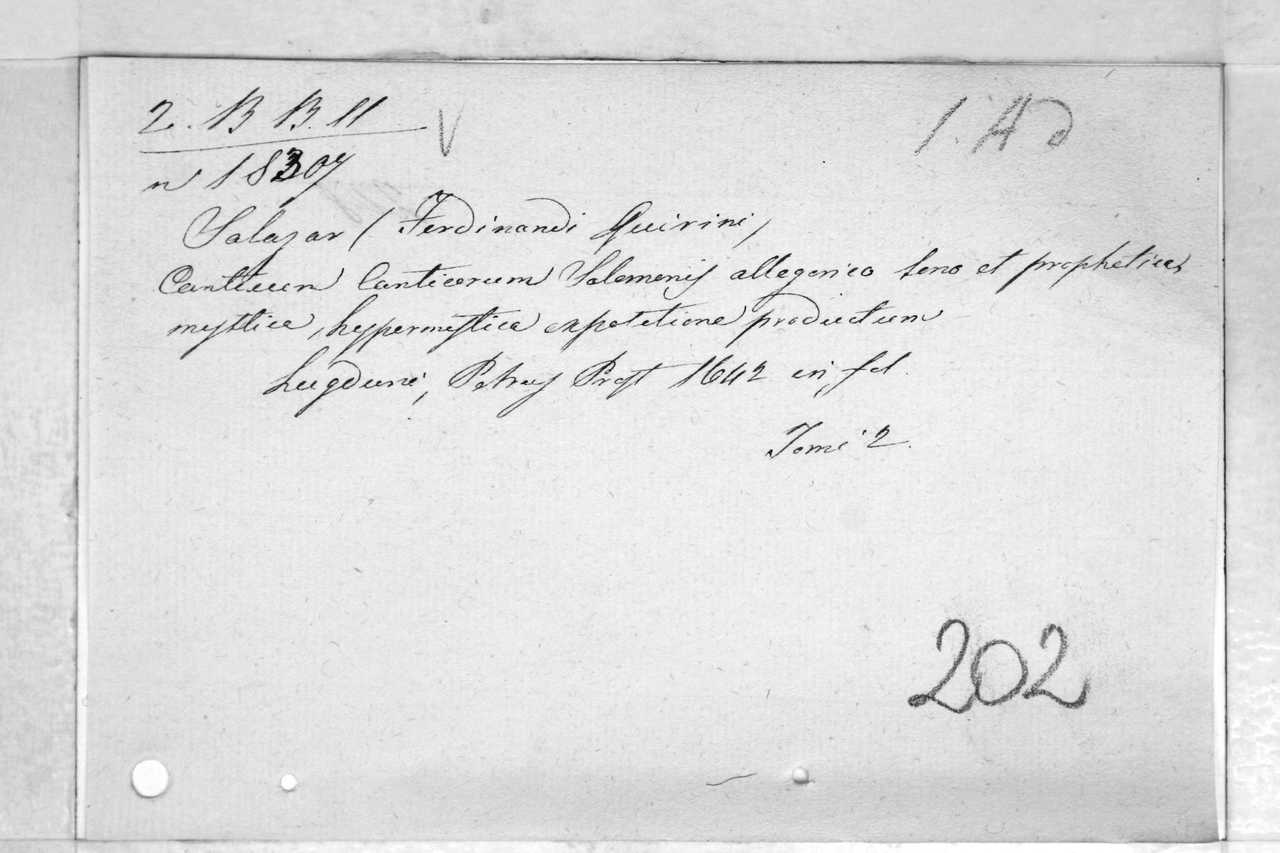 2. B B. 11
V
1. A d
n 18307
Salazar (Ferdinandi Quirini)
Canticum Canticorum Salomonis allegorico sono et prophetica,
mystica, hypermystica expotetione productum
Lugduni, Petrus Prost 1642 in fol.
Tomi 2.
202